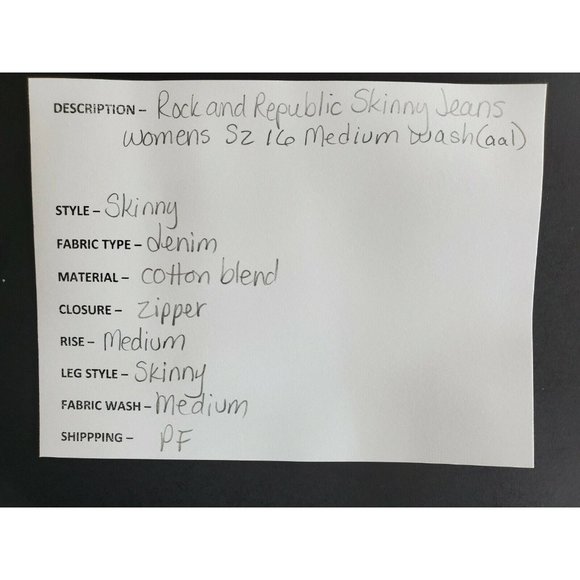 DESCRIPTION – Rock and Republic Skinny Jeans
Womens Sz 16 Medium Wash(aal)
STYLE – Skinny
FABRIC TYPE – denim
MATERIAL – cotton blend
CLOSURE – Zipper
RISE – Medium
LEG STYLE – Skinny
FABRIC WASH – Medium
SHIPPPING – PF